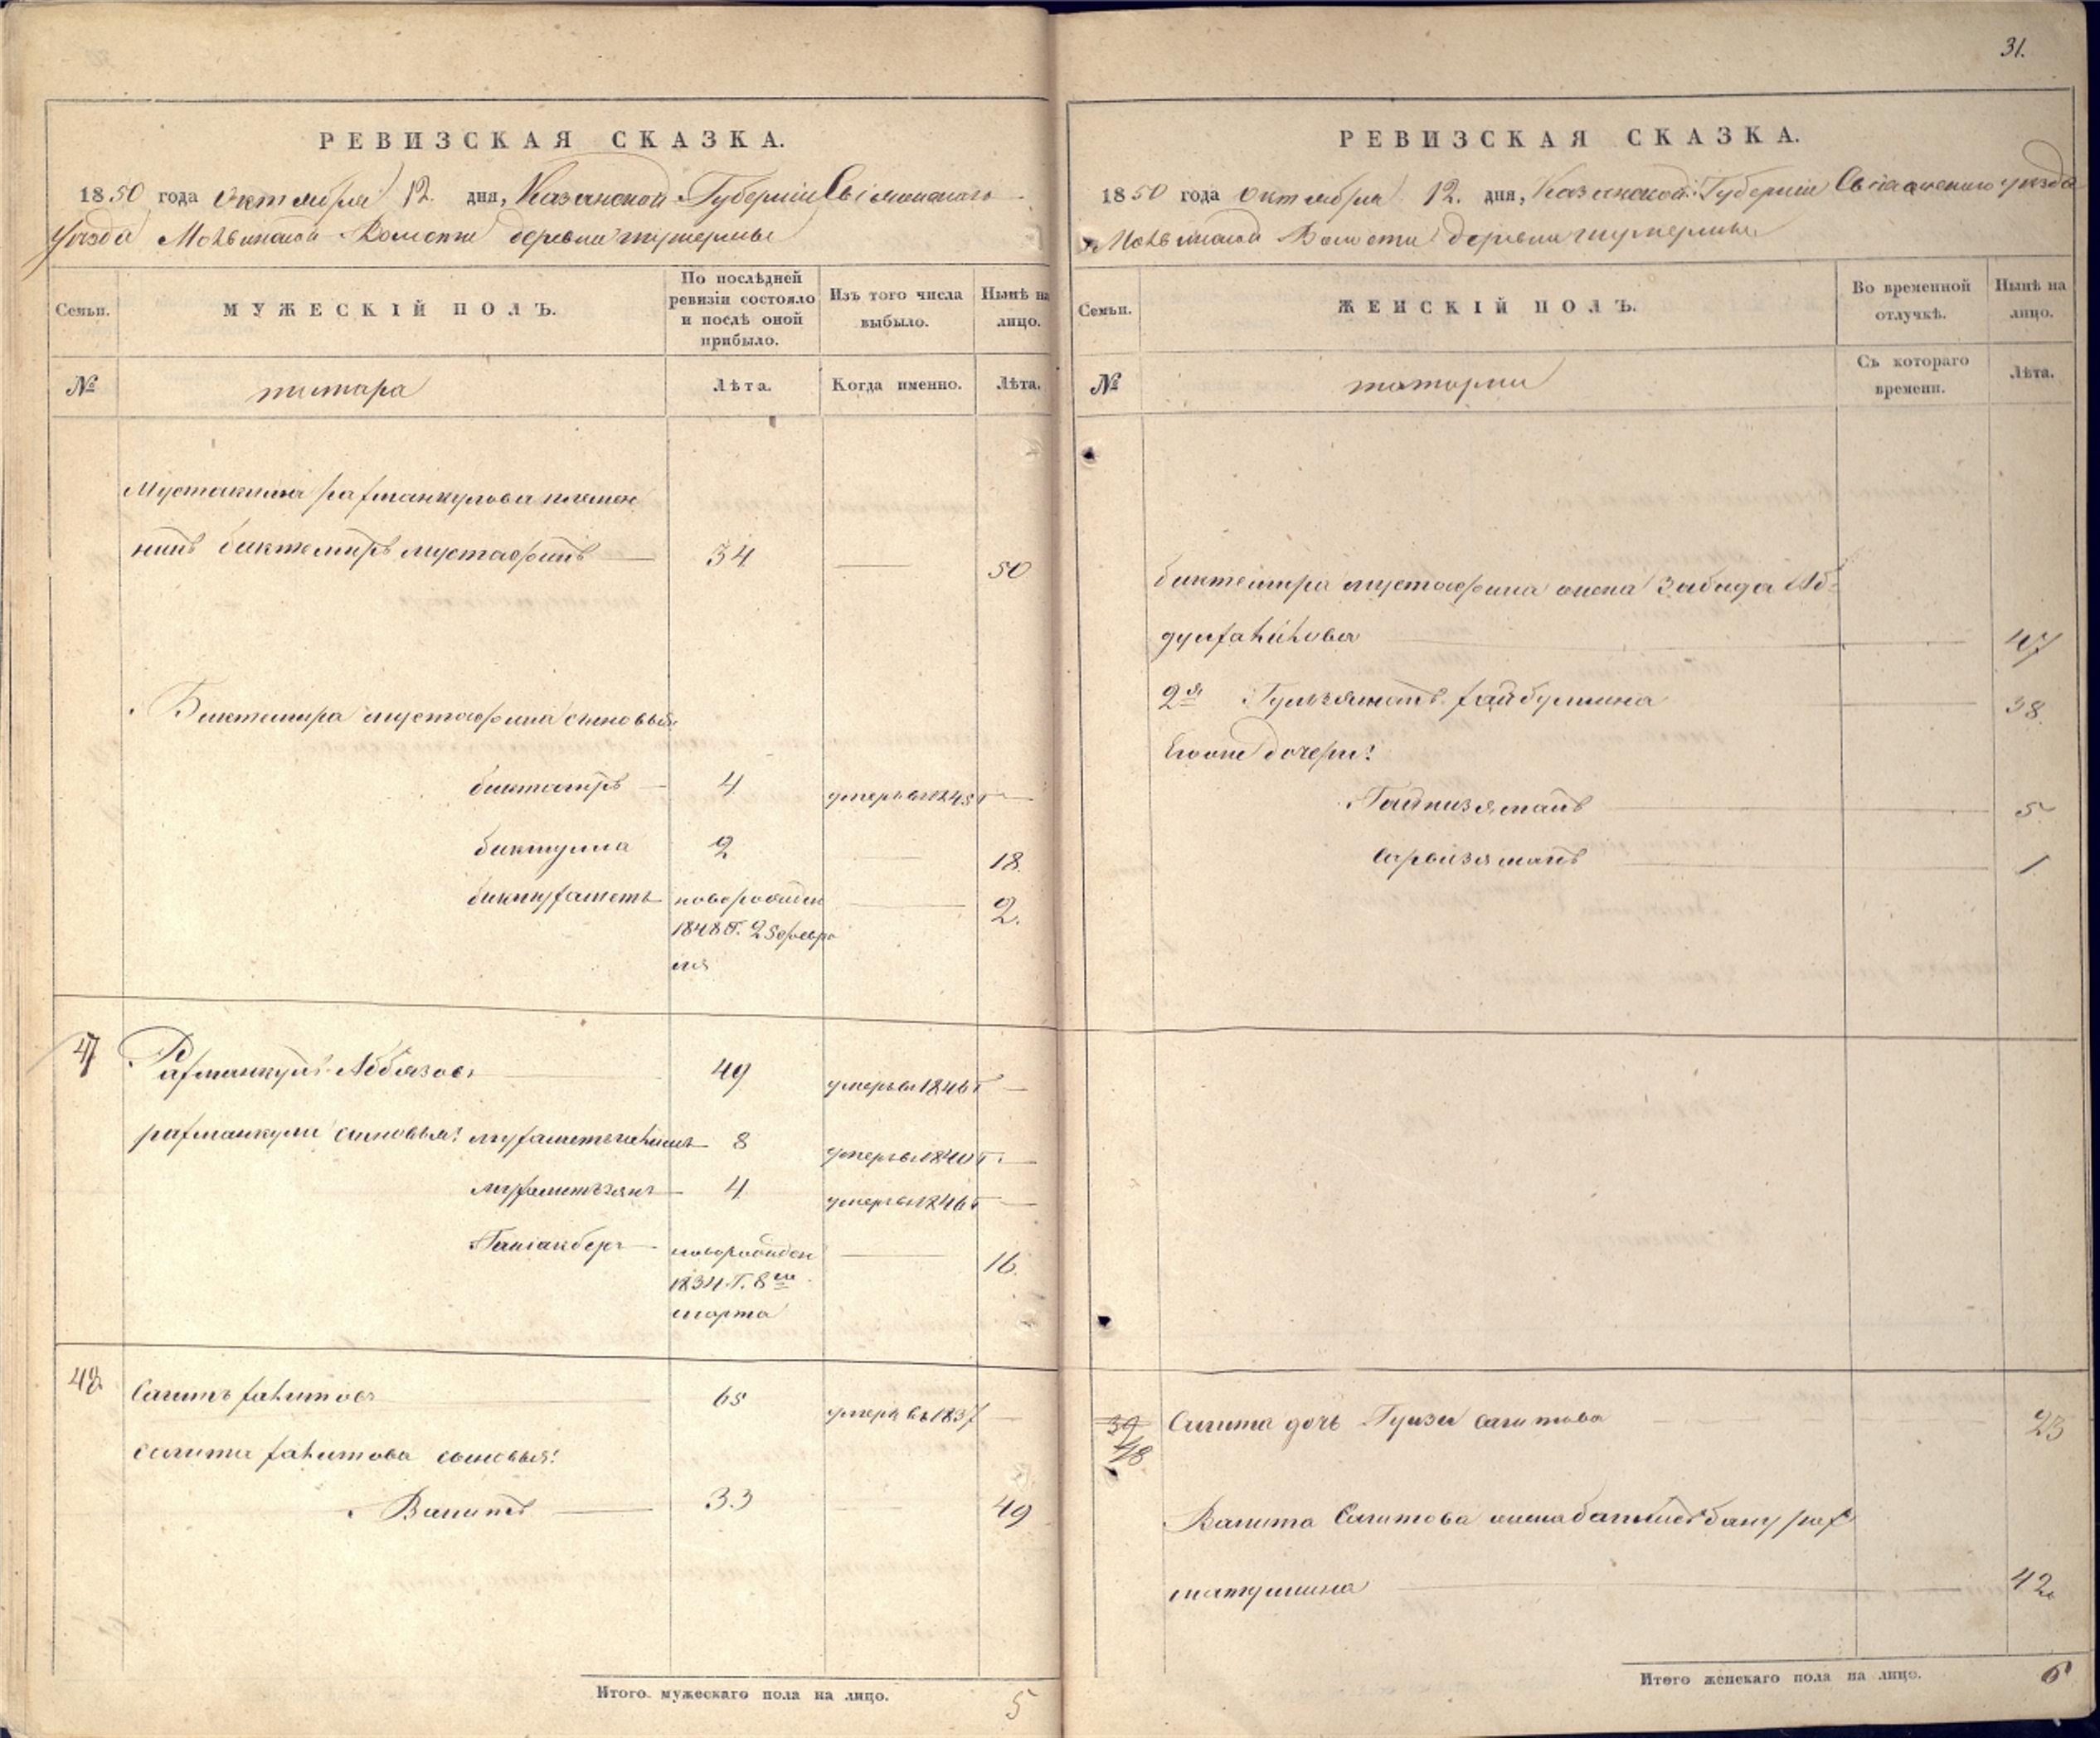 31.
РЕВИЗСКАЯ СКАЗКА.
1850 года Октября 12. дня, Казанской Губерніи Свіяжскаго
Уѣзда Молвинской Волости деревни
МУЖЕСКІЙ ПОЛЪ.
Семьи.
По послѣдней
ревизіи состояло
и послѣ оной
прибыло.
Изъ того числа
выбыло.
Нынѣ на
лицо.
№
татара
Лѣта.
Когда именно.
Лѣта.
Мустакима рахманкулова племян
никъ биктемиръ мустафинъ 34 50
Биктемира мустафина сыновья
4 умеръ въ 1845 г
биктулла 2 18.
бикмухаметъ новорожден 2.
1848 г. 25 февра
ля
47 Рахманкулъ Аббязовъ 49 умеръ въ 1846 г
рахманкула сыновья: 8 умеръ въ 1840 г.
мухаметзянъ 4 умеръ въ 1846 г
Галіакберъ новорожден 16.
1834 г. 8го
марта
48 Сагитъ 65 умеръ въ 1837
сагита сыновья:
Вагитъ 33 49
Итого мужескаго пола на лицо. 5
РЕВИЗСКАЯ СКАЗКА.
1850 года октября 12. дня, Казанской Губерніи Свіяжскаго уѣзда
Молвинской Волости деревни
Семьи.
ЖЕНСКІЙ ПОЛЪ.
Во временной
отлучкѣ.
Нынѣ на
лицо.
№
татарки
Съ котораго
времени.
Лѣта.
биктемира мустафина жена Забида Аб-
47
2я Гульзяманъ хайбуллина 38.
Егоже дочери:
5
1
39
48 Сагита дочь Гульзи сагитова 23
Вагита Сагитова жена бану рах
матуллина 42
Итого женскаго пола на лицо. 6